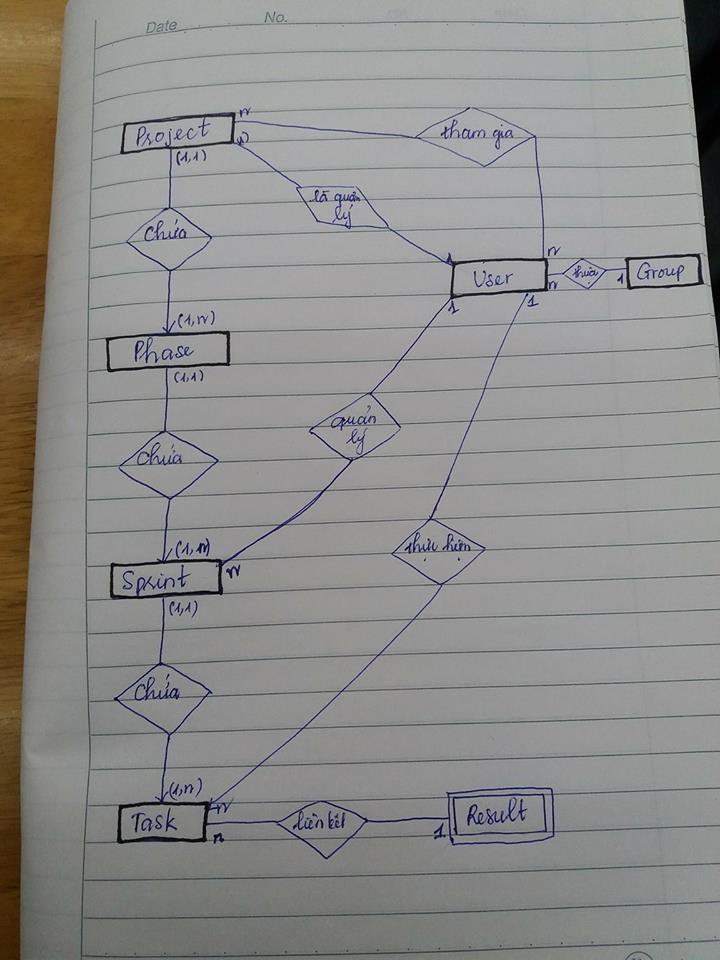 Date
No.
Project
n
n
tham gia
(1,1)
là quản
lý
chứa
1
n
User
n
thuộc
1
Group
1
1
(1,n)
Phase
(1,1)
quản
lý
chứa
(1,n)
n
thực hiện
Sprint
(1,1)
chứa
(1,n)
n
Task
n
liên kết
1
Result